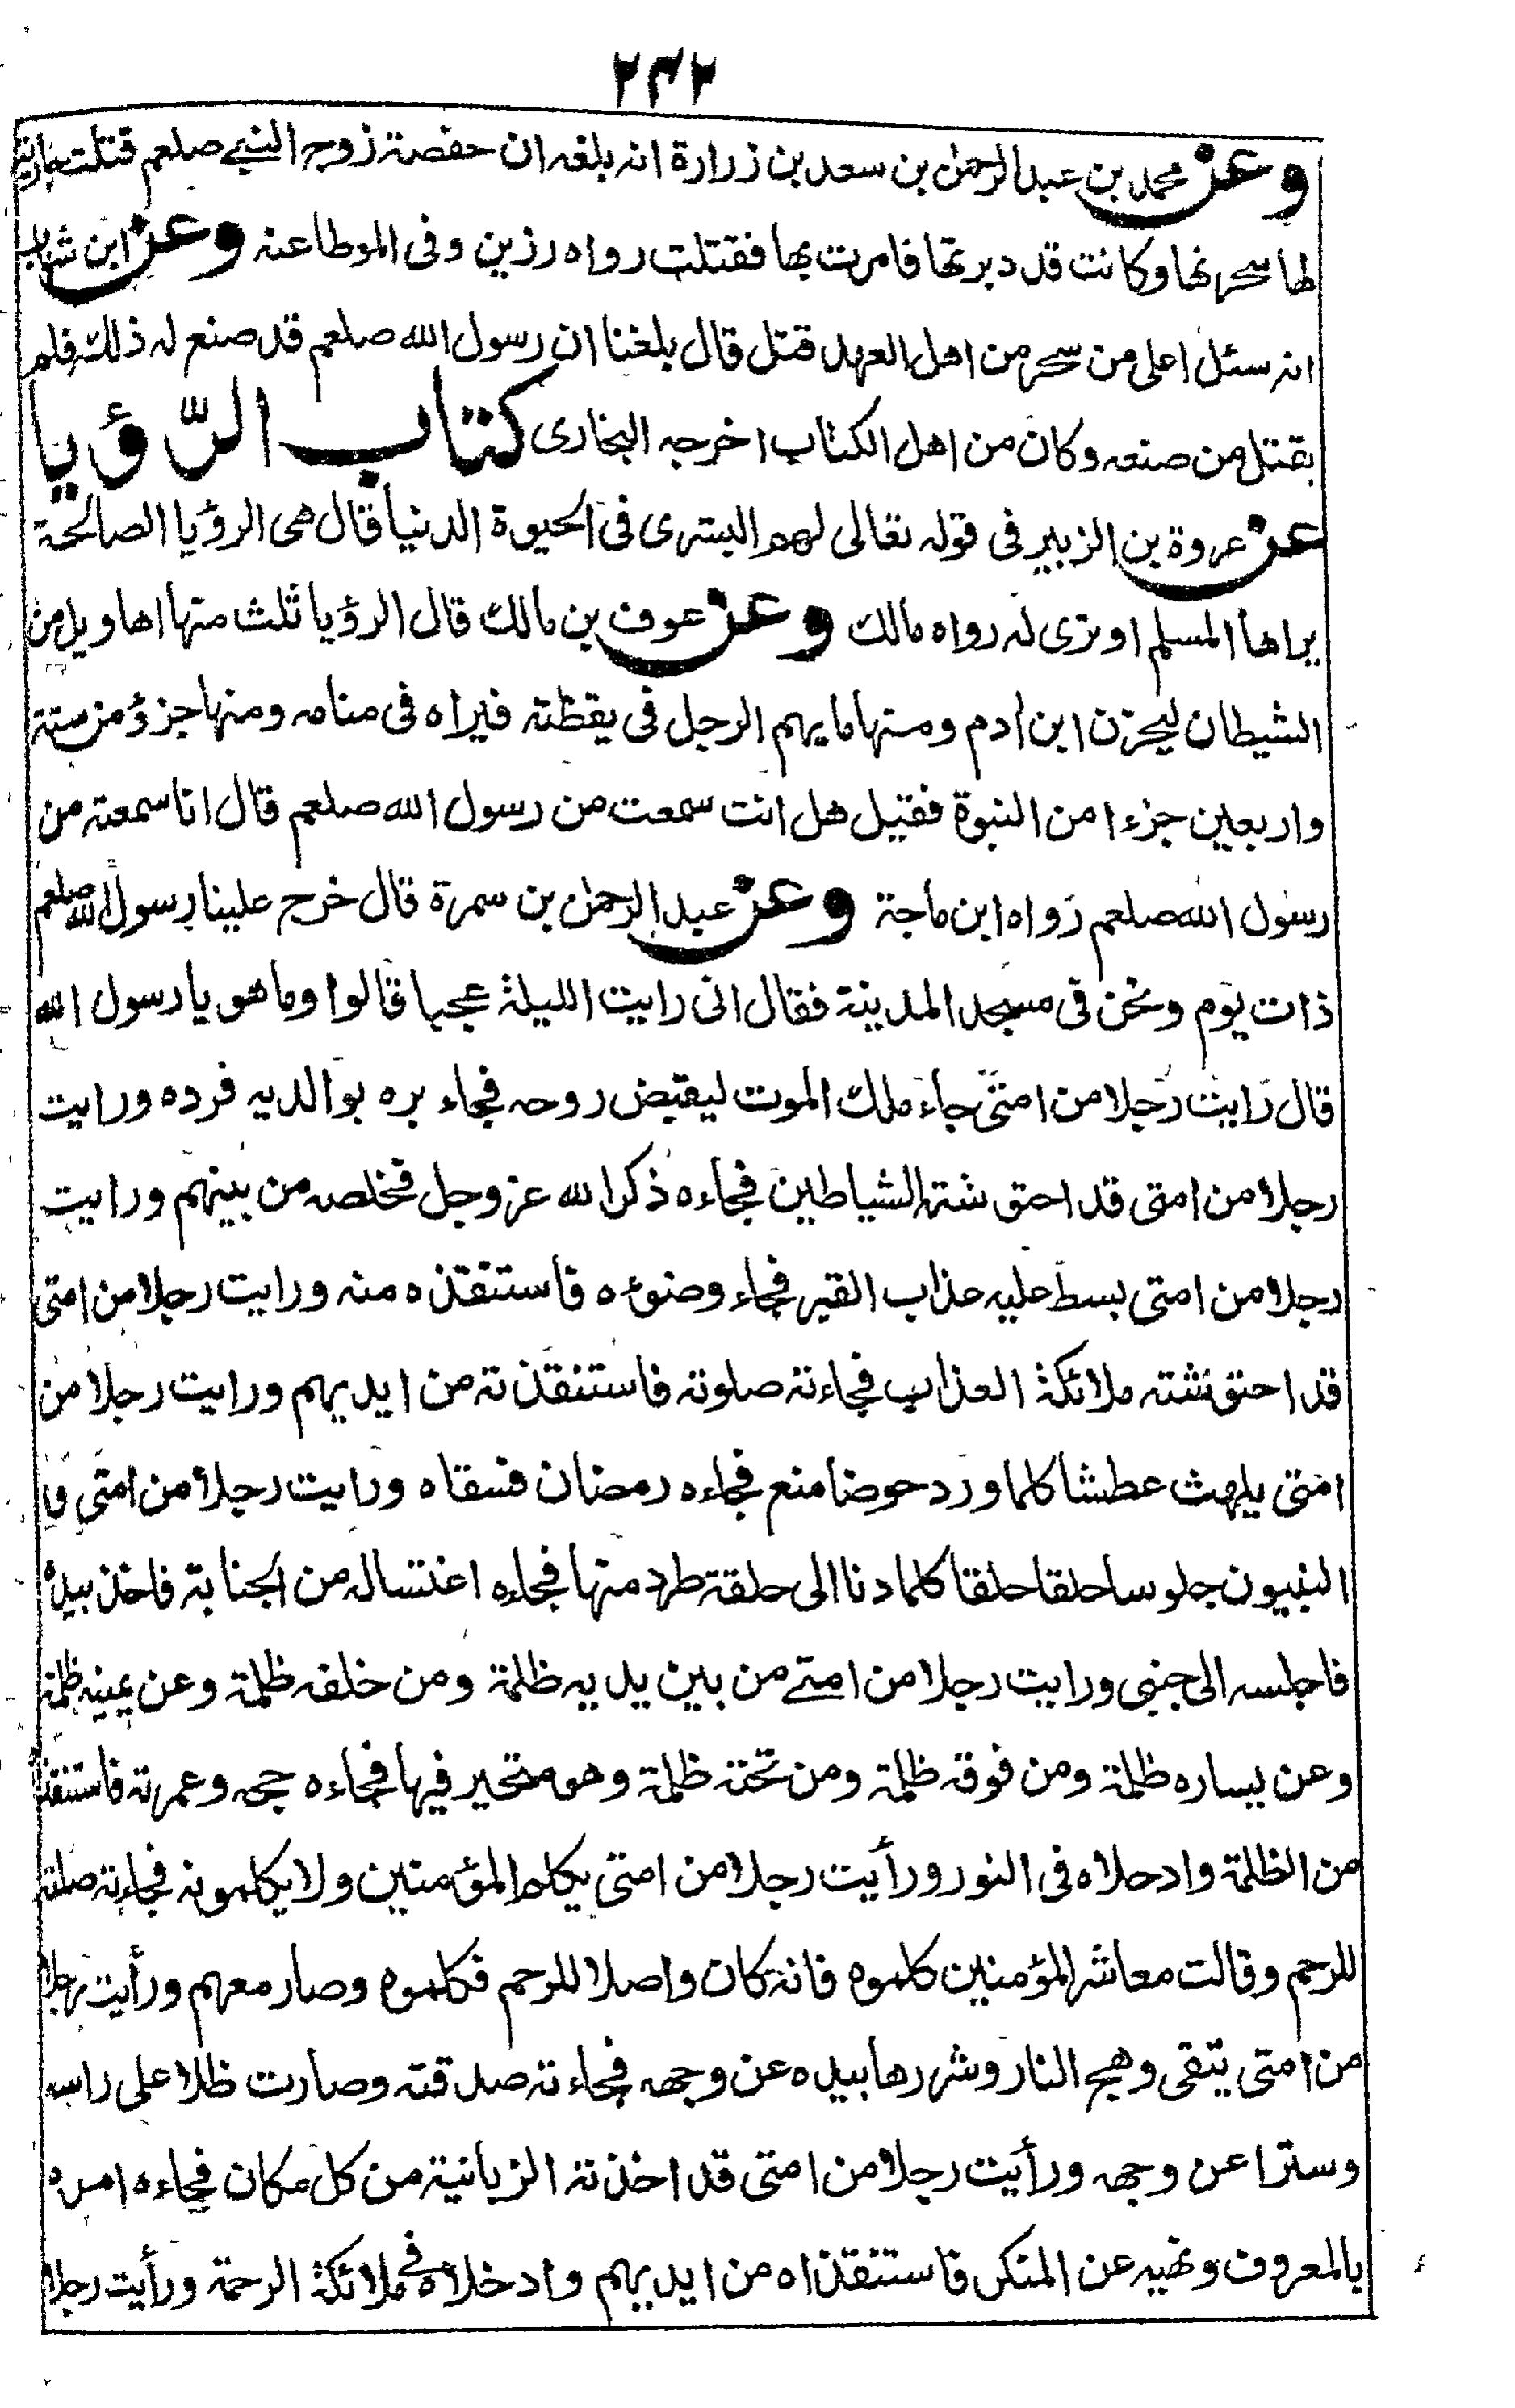 ٢٤٢
وعن محمد بن عبدالرحمٰن بن سعد بن زرارة انه بلغه ان حفصة زوج النبي صلعم قتلت جارية
لها سحرتها وكانت قد دبرتها فامرت بها فقتلت رواه رزين وفى الموطا عنه وعن ابن شهاب
انه سئل اعلى من سحر من اهل العهد قتل قال بلغنا ان رسول الله صلعم قد صنع له ذلك فلم
يقتل من صنعه وكان من اهل الكتاب اخرجه البخارى كتاب الرّؤيا
عن عروة بن الزبير فى قوله تعالى لهم البشرى فى الحيوة الدنيا قال هى الرؤيا الصالحة
يراها المسلم او ترى له رواه مالك وعن عوف بن مالك قال الرؤيا ثلث منها اهاويل من
الشيطان ليحزن ابن ادم ومنها ما يهم الرجل فى يقظته فيراه فى منامه ومنها جزؤ من ستة
واربعين جزءا من النبوة فقيل هل انت سمعت من رسول الله صلعم قال انا سمعته من
رسول الله صلعم رواه ابن ماجة وعن عبد الرحمٰن بن سمرة قال خرج علينا رسول الله صلعم
ذات يوم ونحن فى مسجد المدينة فقال انى رايت الليلة عجبا قالوا وما هو يا رسول الله
قال رايت رجلا من امتى جاء ملك الموت ليقبض روحه فجاء بره بوالديه فرده ورايت
رجلا من امتى قد احتو شته الشياطين فجاءه ذكر الله عز وجل فخلصه من بينهم ورايت
رجلا من امتى بسط عليه عذاب القبر فجاء وضوءه فاستنقذه منه ورايت رجلا من امتى
قد احتوشته ملائكة العذاب فجاءته صلوته فاستنقذته من ايديهم ورايت رجلا من
امتى يلهث عطشا كلما ورد حوضا منع فجاءه رمضان فسقاه ورايت رجلا من امتى و
النبيون جلوسا حلقا حلقا كلما دنا الى حلقة طرد منها فجاءه اغتساله من الجنابة فاخذ بيده
فاجلسه الى جنبى ورايت رجلا من امتے من بين يديه ظلمة ومن خلفه ظلمة وعن يمينه ظلمة
وعن يساره ظلمة ومن فوقه ظلمة ومن تحته ظلمة وهو متحير فيها فجاءه حجه وعمرته فاستنقذاه
من الظلمة وادخلاه فى النور ورأيت رجلا من امتى يكلم المؤمنين ولا يكلمونه فجاءته صلته
للرحم وقالت معاشر المؤمنين كلموه فانه كان واصلا للرحم فكلموه وصار معهم ورأيت رجلا
من امتى يتقى وهج النار وشررها بيده عن وجهه فجاءته صدقته وصارت ظلا على راسه
وسترا عن وجهه ورأيت رجلا من امتى قد اخذته الزبانية من كل مكان فجاءه امره
بالمعروف ونهيه عن المنكر فاستنقذاه من ايديهم وادخلاه فى ملائكة الرحمة ورأيت رجلا